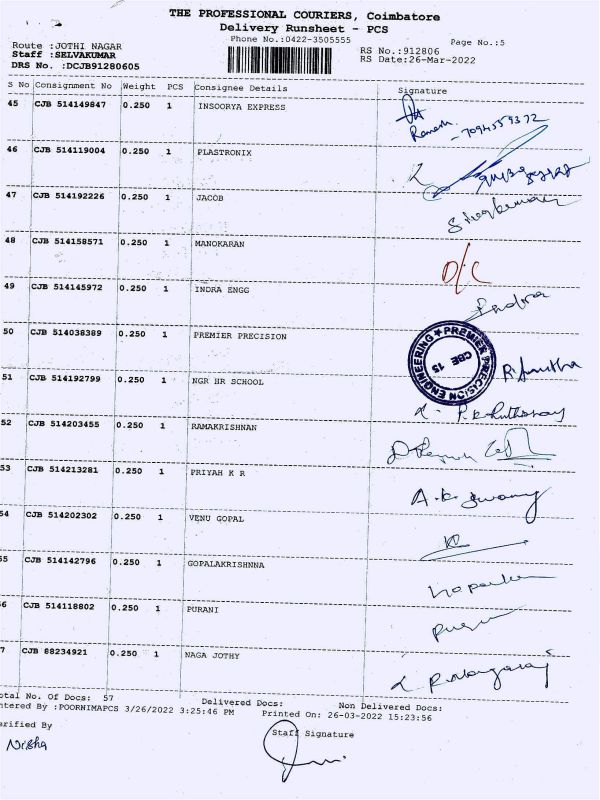 THE PROFESSIONAL COURIERS, Coimbatore
Delivery Runsheet - PCS
Phone No.:0422-3505555
Page No.:5
Route :JOTHI NAGAR
Staff :SELVAKUMAR
DRS No. :DCJB91280605
RS No.:912806
RS Date:26-Mar-2022
S No Consignment No Weight PCS Consignee Details Signature
45 CJB 514149847 0.250 1 INSOORYA EXPRESS
Ramesh
46 CJB 514119004 0.250 1 PLASTRONIX
47 CJB 514192226 0.250 1 JACOB
48 CJB 514158571 0.250 1 MANOKARAN D/C
49 CJB 514145972 0.250 1 INDRA ENGG Indra
50 CJB 514038389 0.250 1 PREMIER PRECISION
PREMIER PRECISION ENGINEERING
CBE 15
51 CJB 514192799 0.250 1 NGR HR SCHOOL
52 CJB 514203455 0.250 1 RAMAKRISHNAN
53 CJB 514213281 0.250 1 PRIYAH K R
54 CJB 514202302 0.250 1 VENU GOPAL
55 CJB 514142796 0.250 1 GOPALAKRISHNNA
56 CJB 514118802 0.250 1 PURANI
7 CJB 88234921 0.250 1 NAGA JOTHY
otal No. Of Docs: 57 Delivered Docs: Non Delivered Docs:
ntered By :POORNIMAPCS 3/26/2022 3:25:46 PM Printed On: 26-03-2022 15:23:56
erified By Staff Signature
Nisha